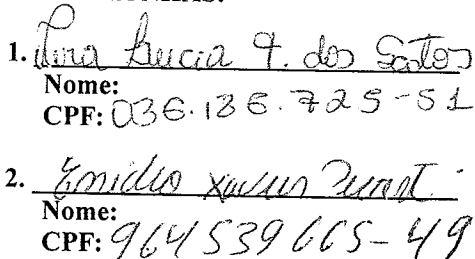 1. Ana Lucia F. dos Santos
Nome:
CPF: 036.136.725-51
2. Emidio Xavier
Nome:
CPF: 964539665-49